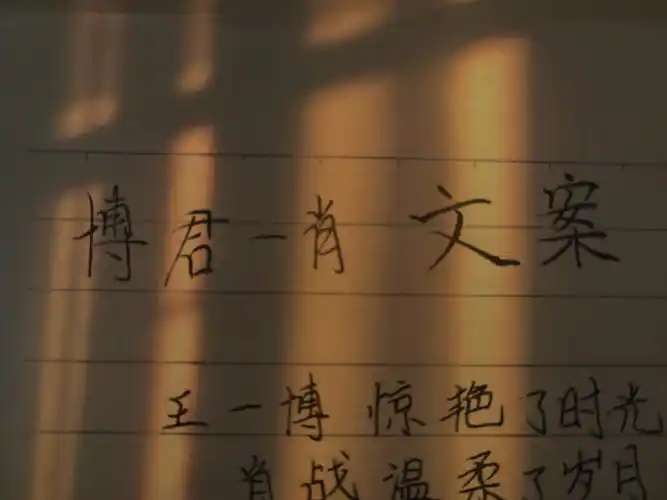 博君一肖 文案
王一博 惊艳了时光
肖战温柔了岁月